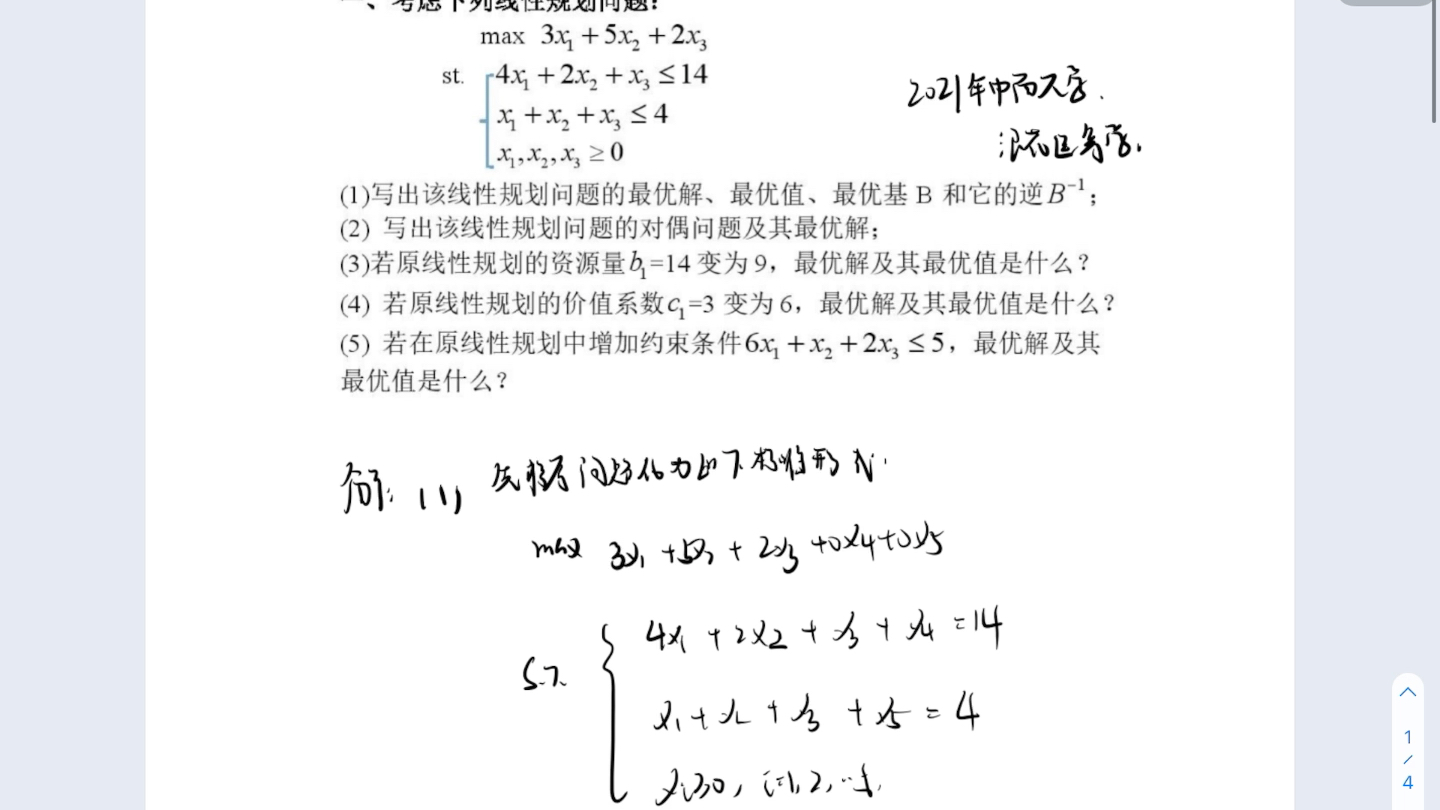 一、考虑下列线性规划问题：
max 3x₁+5x₂+2x₃
st. 4x₁+2x₂+x₃≤14
x₁+x₂+x₃≤4
x₁,x₂,x₃≥0
2021年中南大学.
(1)写出该线性规划问题的最优解、最优值、最优基 B 和它的逆B⁻¹；
(2) 写出该线性规划问题的对偶问题及其最优解；
(3)若原线性规划的资源量b₁=14 变为 9，最优解及其最优值是什么？
(4) 若原线性规划的价值系数c₁=3 变为 6，最优解及其最优值是什么？
(5) 若在原线性规划中增加约束条件6x₁+x₂+2x₃≤5，最优解及其
最优值是什么？
解: (1) 先将原问题化为如下标准形式.
max 3x₁+5x₂+2x₃+0x₄+0x₅
s.t. 4x₁+2x₂+x₃+x₄=14
x₁+x₂+x₃+x₅=4
xᵢ≥0, i=1,2,…5.
1
/
4